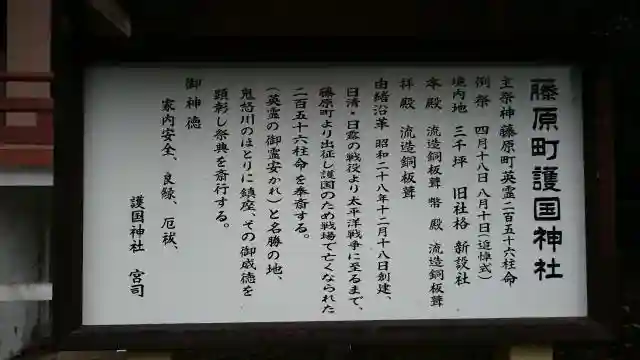 藤原町護国神社
主祭神 藤原町英霊二百五十六柱命
例祭 四月十八日 八月十日(追悼式)
境内地 三千坪 旧社格 新設社
本殿 流造銅板葺 幣殿 流造銅板葺
拝殿 流造銅板葺
由緒沿革 昭和二十八年十二月十八日創建、
日清・日露の戦役より太平洋戦争に至るまで、
藤原町より出征し護国のため戦場で亡くなられた
二百五十六柱命を奉斎する。
(英霊の御霊安かれ)と名勝の地、
鬼怒川のほとりに鎮座、その御威徳を
顕彰し祭典を斎行する。
御神徳
家内安全、良縁、厄祓、
護国神社 宮司